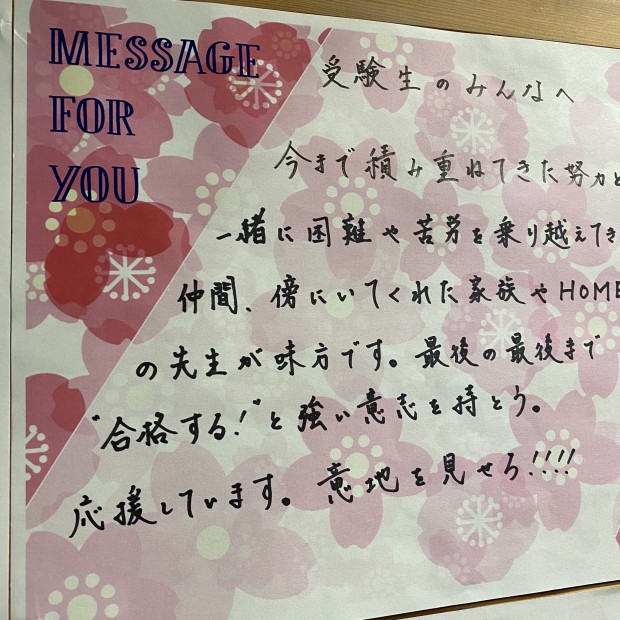 MESSAGE
FOR
YOU
受験生のみんなへ
今まで積み重ねてきた努力と
一緒に困難や苦労を乗り越えてき
仲間、傍にいてくれた家族やHOME
の先生が味方です。最後の最後まで
"合格する!"と強い意志を持とう。
応援しています。意地を見せろ!!!!